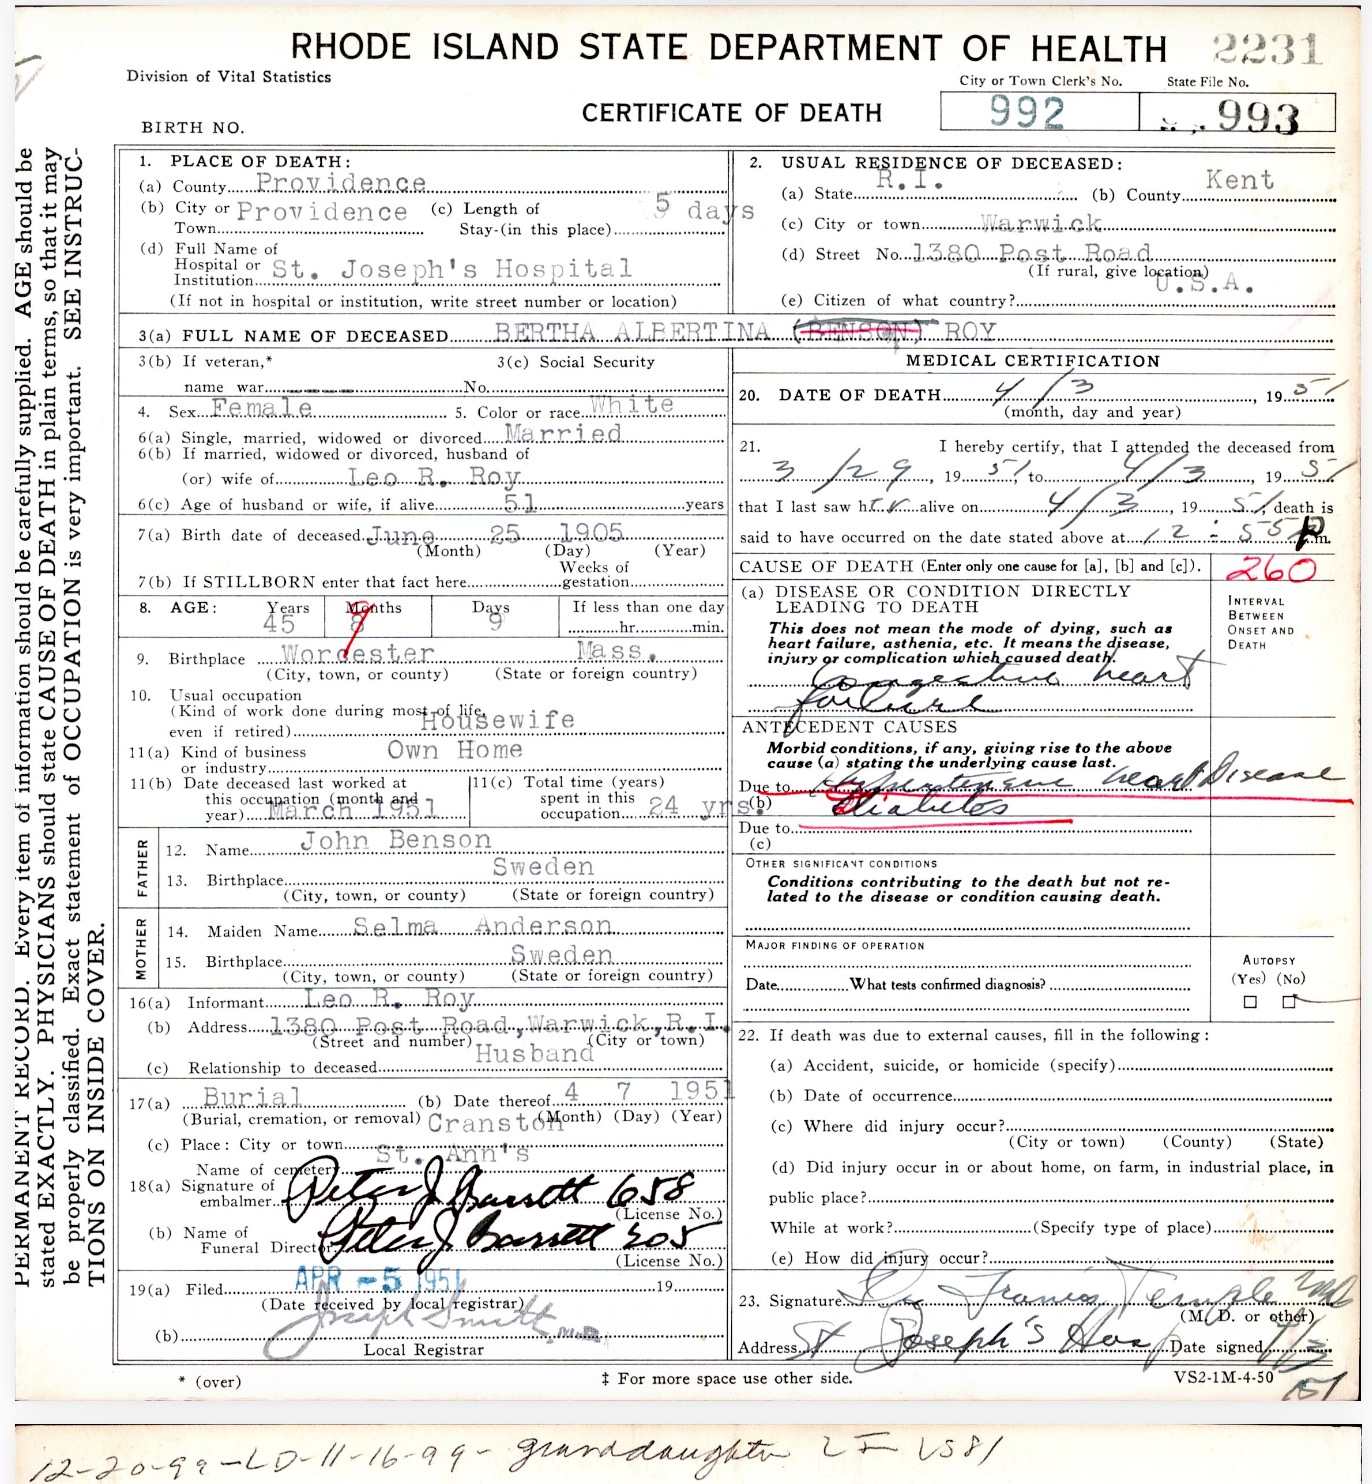 RHODE ISLAND STATE DEPARTMENT OF HEALTH 2231
Division of Vital Statistics
City or Town Clerk's No. State File No.
CERTIFICATE OF DEATH 992 993
BIRTH NO.
PERMANENT RECORD. Every item of information should be carefully supplied. AGE should be
stated EXACTLY. PHYSICIANS should state CAUSE OF DEATH in plain terms, so that it may
be properly classified. Exact statement of OCCUPATION is very important. SEE INSTRUC-
TIONS ON INSIDE COVER.
1. PLACE OF DEATH:
(a) County Providence
(b) City or Town Providence (c) Length of Stay-(in this place) 5 days
(d) Full Name of
Hospital or
Institution St. Joseph's Hospital
(If not in hospital or institution, write street number or location)
2. USUAL RESIDENCE OF DECEASED:
(a) State R.I. (b) County Kent
(c) City or town Warwick
(d) Street No. 1380 Post Road
(If rural, give location)
(e) Citizen of what country? U.S.A.
3(a) FULL NAME OF DECEASED BERTHA ALBERTINA (BENSON) ROY
3(b) If veteran,* name war 3(c) Social Security No.
4. Sex Female 5. Color or race White
6(a) Single, married, widowed or divorced Married
6(b) If married, widowed or divorced, husband of
(or) wife of Leo R. Roy
6(c) Age of husband or wife, if alive 51 years
7(a) Birth date of deceased June 25 1905
(Month) (Day) (Year)
7(b) If STILLBORN enter that fact here Weeks of gestation
8. AGE: Years Months Days If less than one day
45 8 9 9 hr. min.
9. Birthplace Worcester Mass.
(City, town, or county) (State or foreign country)
10. Usual occupation
(Kind of work done during most of life,
even if retired) Housewife
11(a) Kind of business
or industry Own Home
11(b) Date deceased last worked at
this occupation (month and
year) March 1951
11(c) Total time (years)
spent in this
occupation 24 yrs.
FATHER
12. Name John Benson
13. Birthplace Sweden
(City, town, or county) (State or foreign country)
MOTHER
14. Maiden Name Selma Anderson
15. Birthplace Sweden
(City, town, or county) (State or foreign country)
16(a) Informant Leo R. Roy
(b) Address 1380 Post Road, Warwick, R.I.
(Street and number) (City or town)
(c) Relationship to deceased Husband
17(a) Burial (b) Date thereof 4 7 1951
(Burial, cremation, or removal) (Month) (Day) (Year)
(c) Place: City or town Cranston
Name of cemetery St. Ann's
18(a) Signature of
embalmer Peter J Barrett 658
(License No.)
(b) Name of
Funeral Director Peter J Barrett 205
(License No.)
19(a) Filed APR -5 1951 19
(Date received by local registrar)
(b) Joseph Smith M.D.
Local Registrar
MEDICAL CERTIFICATION
20. DATE OF DEATH 4/3, 1951
(month, day and year)
21. I hereby certify, that I attended the deceased from
3/29, 1951, to 4/3, 1951
that I last saw her alive on 4/3, 1951, death is
said to have occurred on the date stated above at 12:55 P m.
CAUSE OF DEATH (Enter only one cause for [a], [b] and [c]). 260
(a) DISEASE OR CONDITION DIRECTLY
LEADING TO DEATH
This does not mean the mode of dying, such as
heart failure, asthenia, etc. It means the disease,
injury or complication which caused death.
INTERVAL
BETWEEN
ONSET AND
DEATH
Congestive heart
failure
ANTECEDENT CAUSES
Morbid conditions, if any, giving rise to the above
cause (a) stating the underlying cause last.
Due to Hypertensive heart Disease
(b) Diabetes
Due to
(c)
OTHER SIGNIFICANT CONDITIONS
Conditions contributing to the death but not re-
lated to the disease or condition causing death.
MAJOR FINDING OF OPERATION
Date What tests confirmed diagnosis?
AUTOPSY
(Yes) (No)
22. If death was due to external causes, fill in the following:
(a) Accident, suicide, or homicide (specify)
(b) Date of occurrence
(c) Where did injury occur?
(City or town) (County) (State)
(d) Did injury occur in or about home, on farm, in industrial place, in
public place?
While at work? (Specify type of place)
(e) How did injury occur?
23. Signature Francis Temple MD
(M. D. or other)
Address St Joseph's Hosp Date signed 4/3
51
* (over) ‡ For more space use other side. VS2-1M-4-50
12-20-99-LD-11-16-99- granddaughter VS81